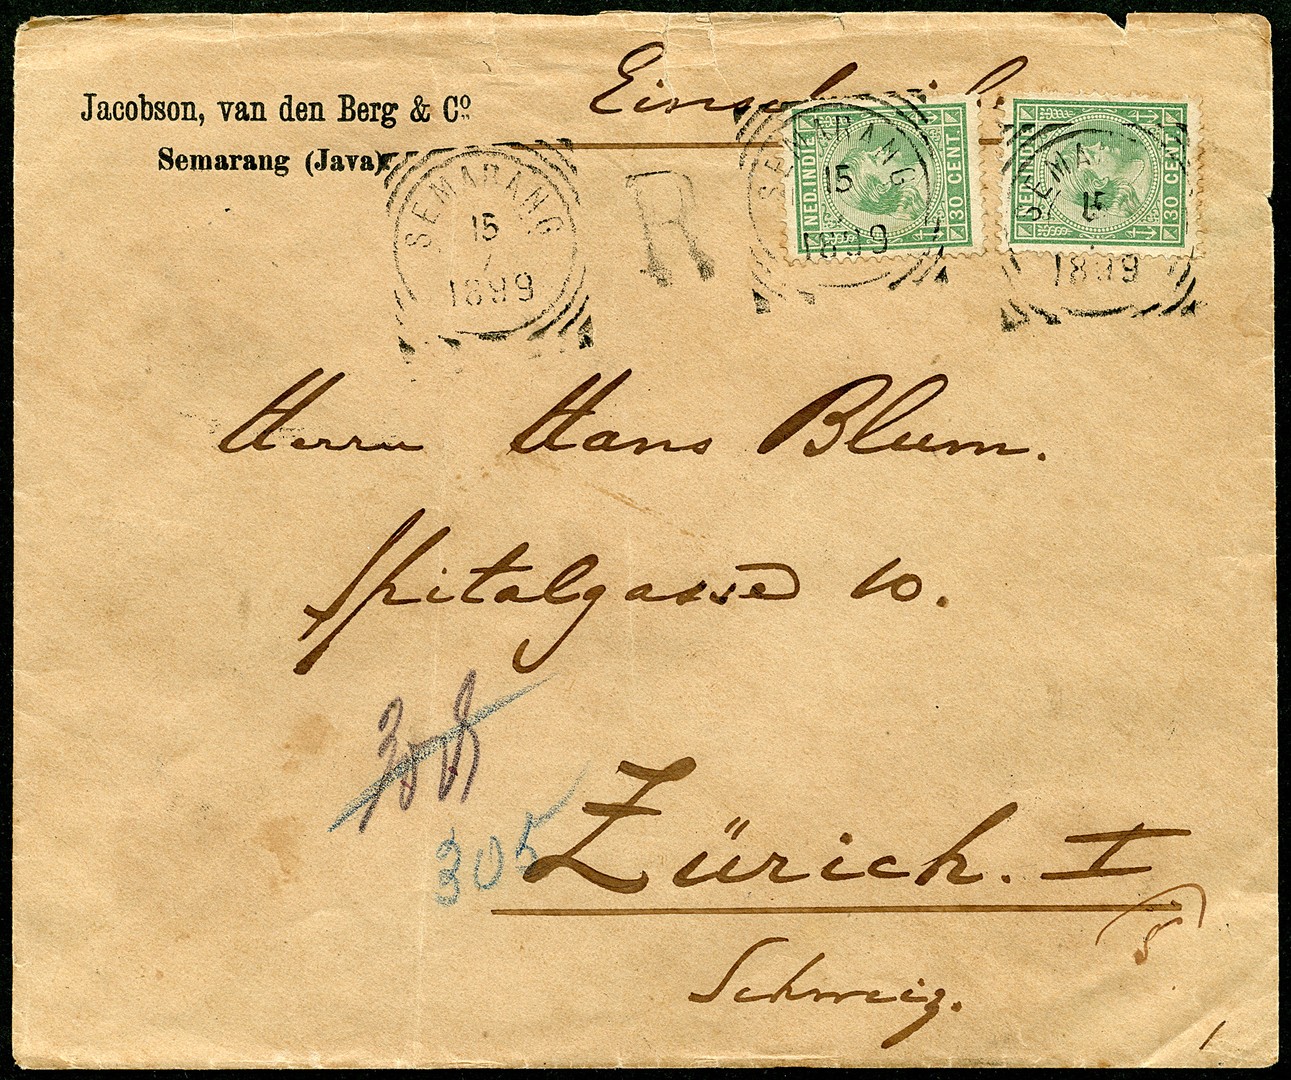 Jacobson, van den Berg & Cº
Semarang (Java)
SEMARANG
15
1899
R
NED. INDIE
30 CENT.
SEMARANG
15
1899
NED. INDIE
30 CENT.
SEMA
15
1899
Herrn Hans Blum.
Spitalgasse 10.
305
Zürich. I
Schweiz.